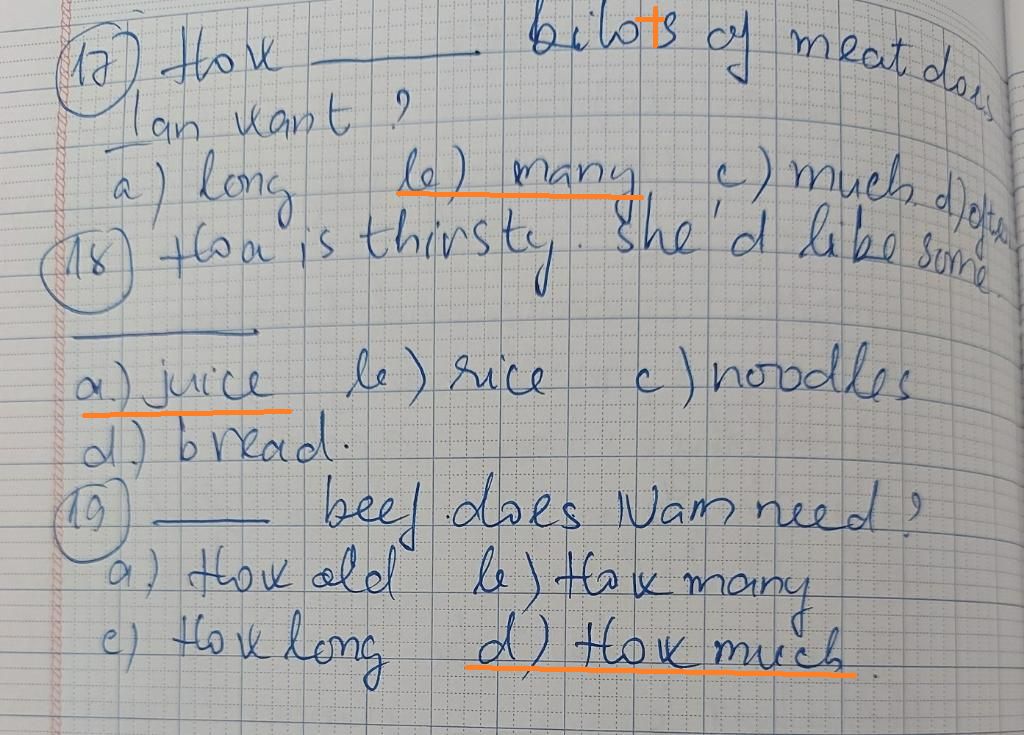 17) How ____ kilots of meat does
Lan want ?
a) long b) many c) much d) often
18) Hoa is thirsty. She'd like some
____
a.) juice b) rice c) noodles
d.) bread.
19) ____ beef does Nam need ?
a) How old b) How many
c) How long d) How much.